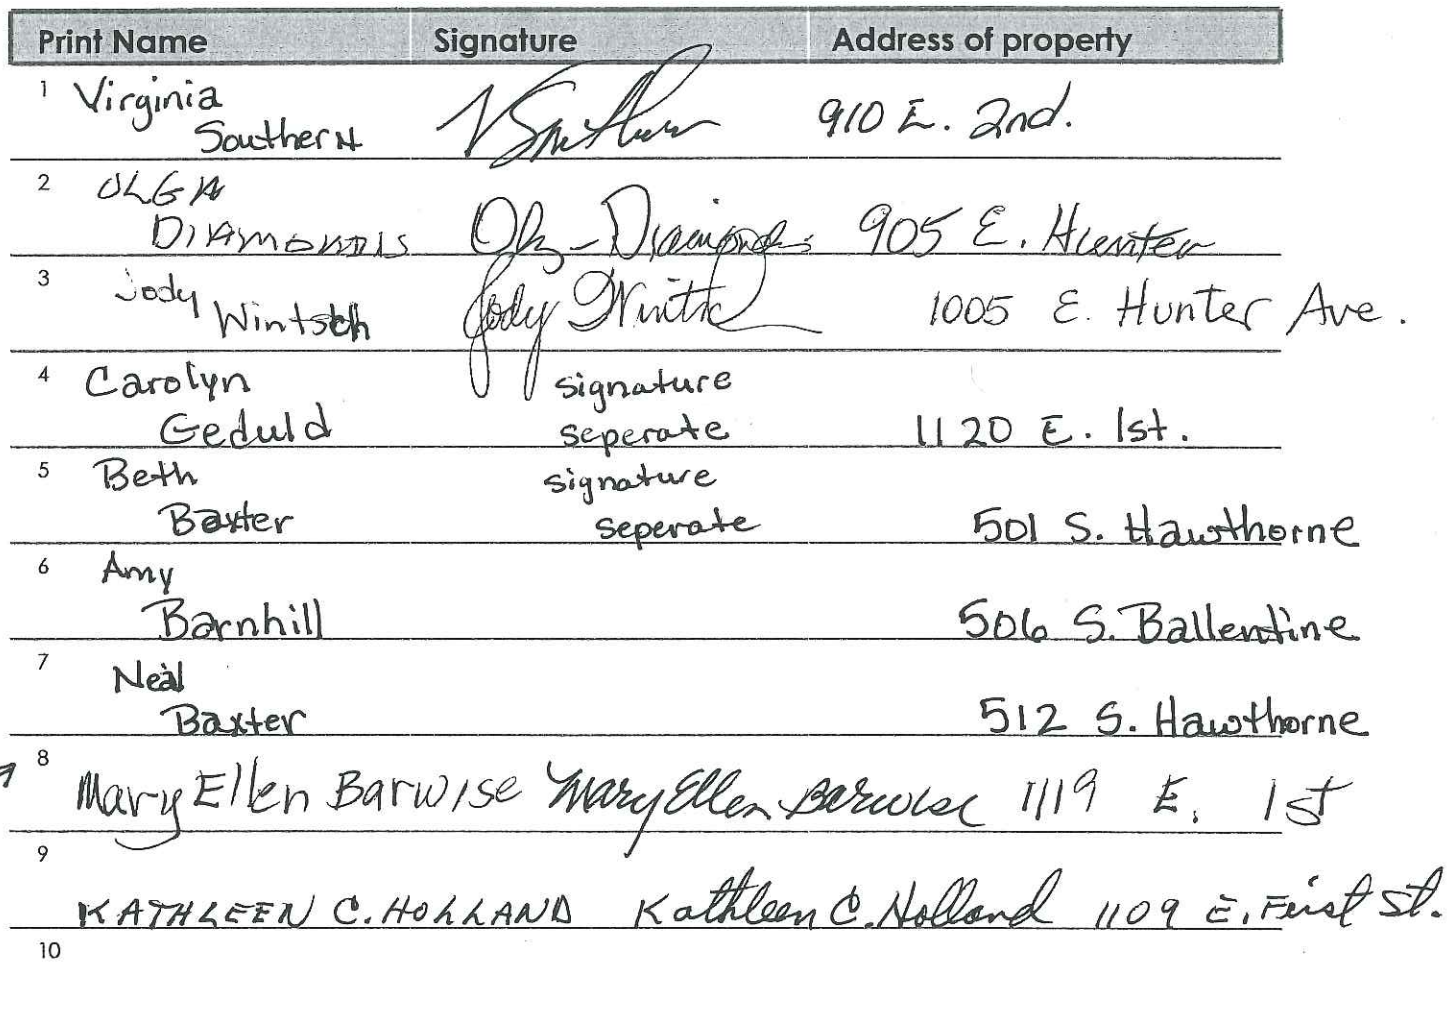 Print Name Signature Address of property
1 Virginia
Southern VSouthern 910 E. 2nd.
2 OLGA
DIAMONDIS Olga Diamondis 905 E. Hunter
3 Jody
Wintsch Jody Wintsch 1005 E. Hunter Ave.
4 Carolyn signature
Geduld seperate 1120 E. 1st.
5 Beth signature
Baxter seperate 501 S. Hawthorne
6 Amy
Barnhill 506 S. Ballentine
7 Neal
Baxter 512 S. Hawthorne
8
Mary Ellen Barwise Mary Ellen Barwise 1119 E. 1st
9
KATHLEEN C. HOLLAND Kathleen C. Holland 1109 E. First St.
10